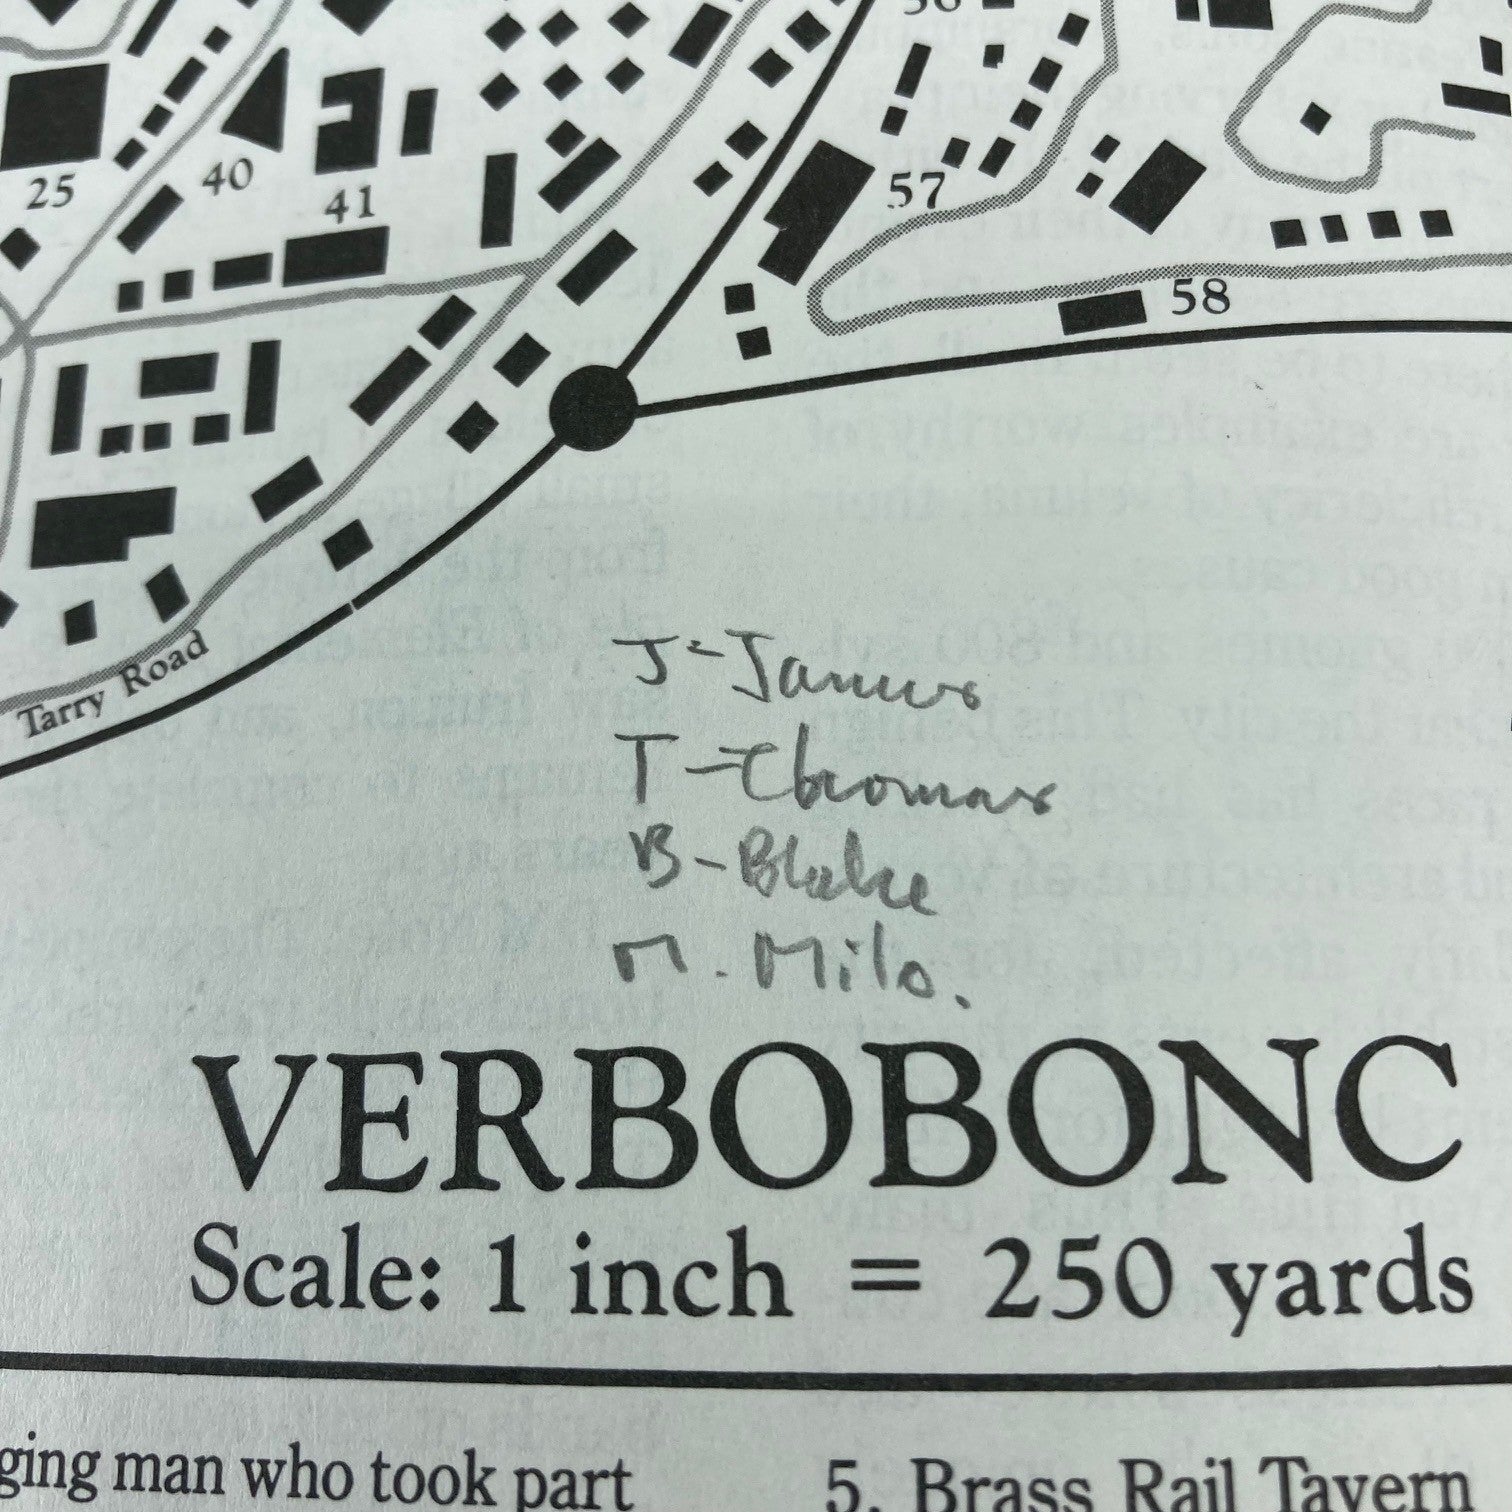 56
25
40
41
57
58
Tarry Road
J - Janus
T - Thomas
B - Blake
M. Milo.
VERBOBONC
Scale: 1 inch = 250 yards
ging man who took part
5. Brass Rail Tavern